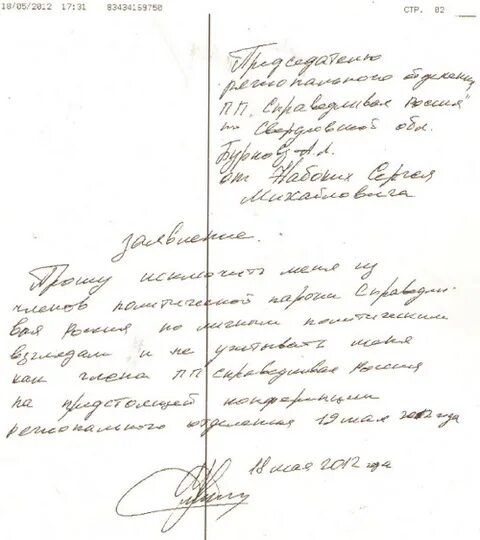 18/05/2012 17:31 83434159750 СТР. 02
Председателю
регионального отделения
ПП "Справедливая Россия"
по Свердловской обл.
Буркову А.Л.
от Набоких Сергея
Михайловича
Заявление.
Прошу исключить меня из
членов политической партии Справедли-
вая Россия по личным политическим
взглядам и не учитывать меня
как члена ПП Справедливая Россия
на предстоящей конференции
регионального отделения 19 мая 2012 года
18 мая 2012 года